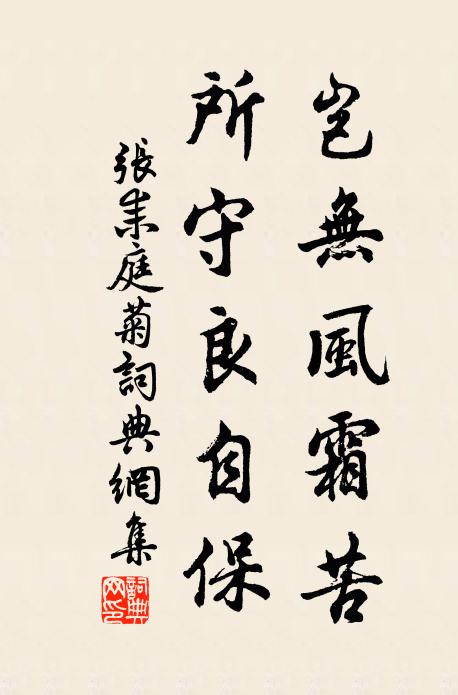 豈無風霜苦
所守良自保
張耒庭菊詞典網集
詞典網印